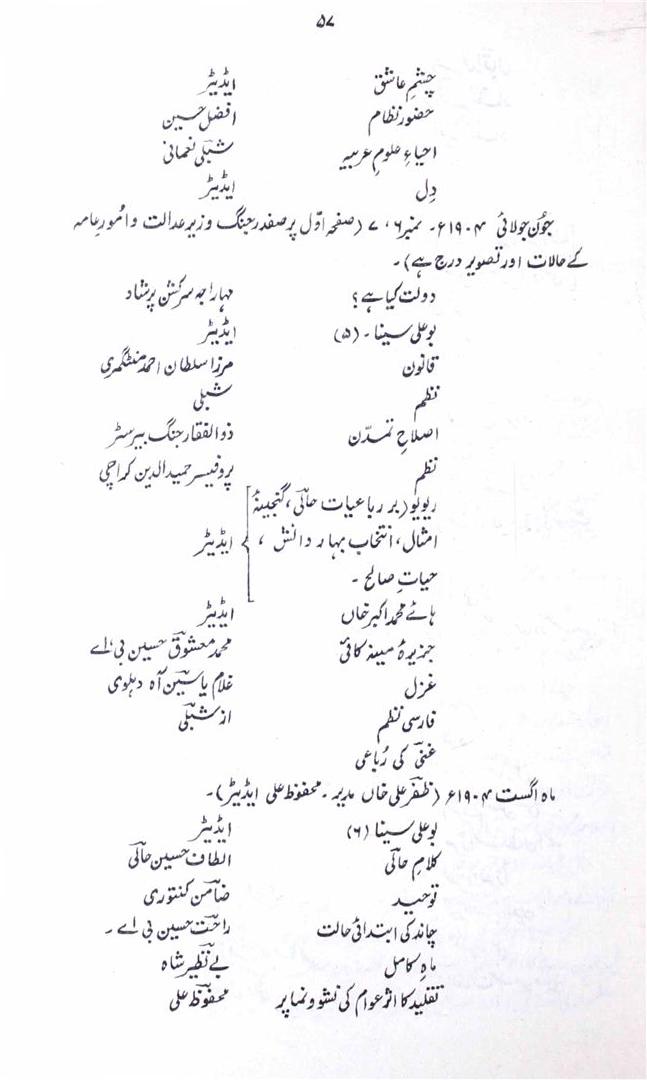 ۵۷
چشمِ عاشق ایڈیٹر
حضور نظام افضل حسین
احیاءِ علومِ عربیہ شبلی نعمانی
دِل ایڈیٹر
جُون جولائی ۱۹۰۴ء۔ نمبر ۶، ۷ (صفحہ اوّل پر صفدر جنگ وزیر عدالت و اُمورِ عامہ
کے حالات اور تصویر درج ہے)۔
دولت کیا ہے؟ مہاراجہ سرکشن پرشاد
بوعلی سینا۔ (۵) ایڈیٹر
قانون مرزا سلطان احمد منٹگمری
نظم شبلی
اصلاحِ تمدّن ذوالفقار جنگ بیرسٹر
نظم پروفیسر حمید الدین کراچی
ریویو (بر رباعیات حالی، گنجینۂ
امثال، انتخاب بہار دانش، ایڈیٹر
حیاتِ صالح۔
ہائے محمد اکبر خاں ایڈیٹر
جزیرۂ مینہ کائی محمد معشوق حسین بی، اے
غزل غلام یاسین آہ دہلوی
فارسی نظم از شبلی
غنی کی رُباعی
ماہ اگست ۱۹۰۴ء (ظفر علی خاں مدیر۔ محفوظ علی ایڈیٹر)۔
بوعلی سینا (۶) ایڈیٹر
کلامِ حالی الطاف حسین حالی
توحید ضامن کنتوری
چاند کی ابتدائی حالت راحت حسین بی اے۔
ماہِ کامل بے نظیر شاہ
تقلید کا اثر عوام کی نشوونما پر محفوظ علی